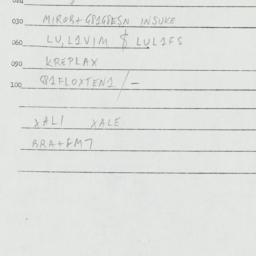 030 MIROR+ G81G8ESN INSUKE
060 LU,L1VIM $ LUL1FS
090 KREPLAX
100 81FLOXTEN1/-
XALI XALE
BRA+FM7